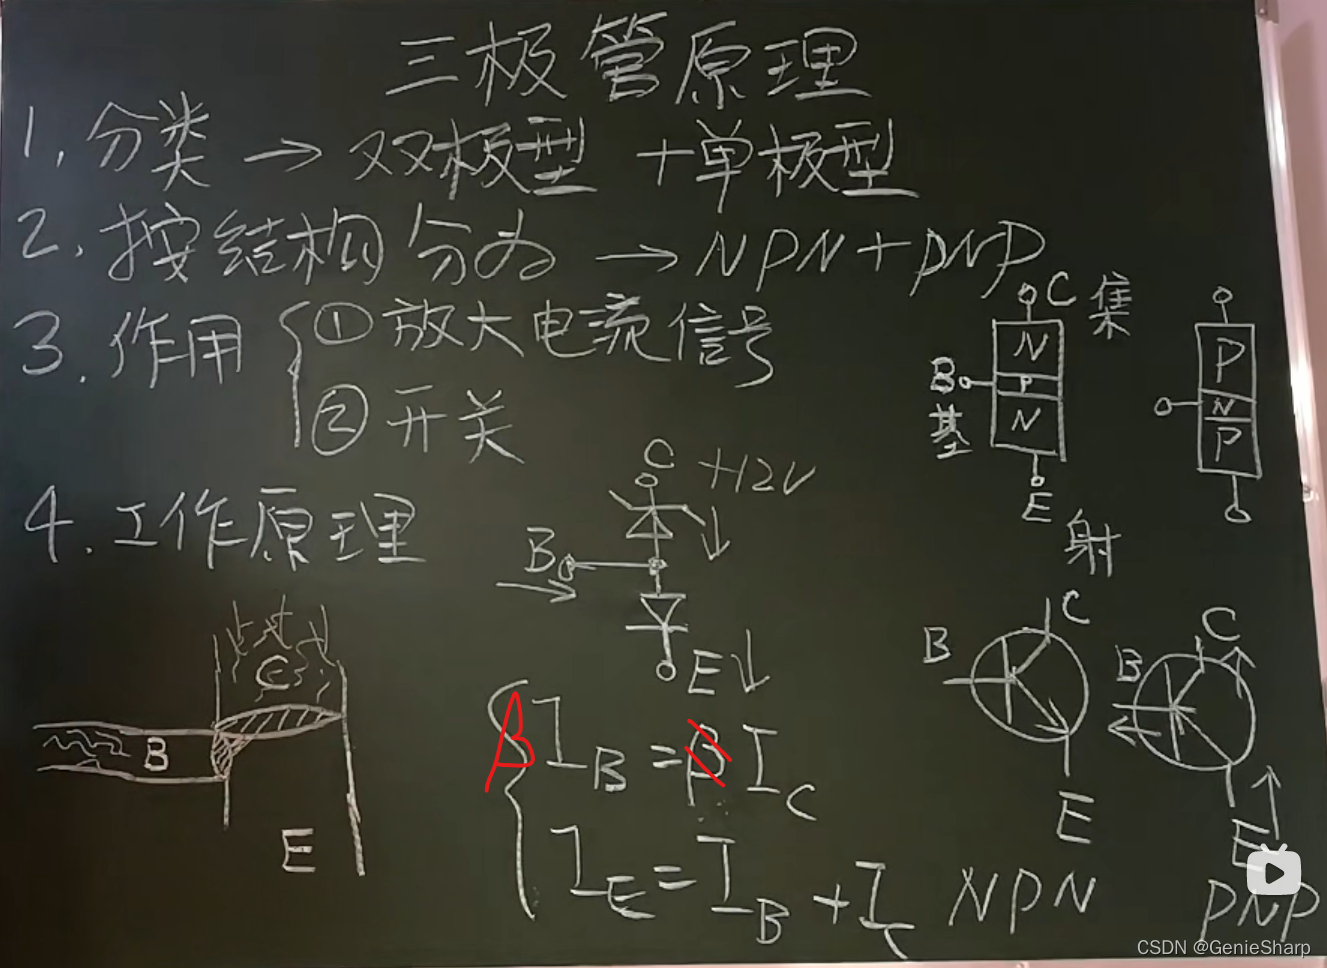 三极管原理
1. 分类 → 双极型 + 单极型
2. 按结构分为 → NPN + PNP
3. 作用 ① 放大电流信号
② 开关
4. 工作原理
C 集
N
P
N
B
基
E
射
P
N
P
C +12V
B
E
C
B
E
B C
E
NPN
B C
E
PNP
βI_B = βI_C
I_E = I_B + I_C
CSDN @GenieSharp